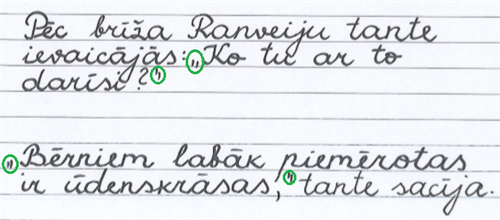 Pēc brīža Ranveiju tante
ievaicājās: „Ko tu ar to
darīsi?"
„Bērniem labāk piemērotas
ir ūdenskrāsas," tante sacīja.